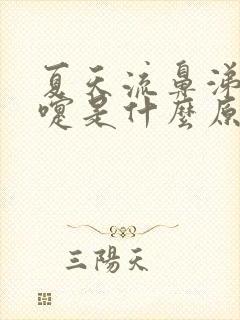 夏天流鼻涕
嚏是什麼原
三陽天